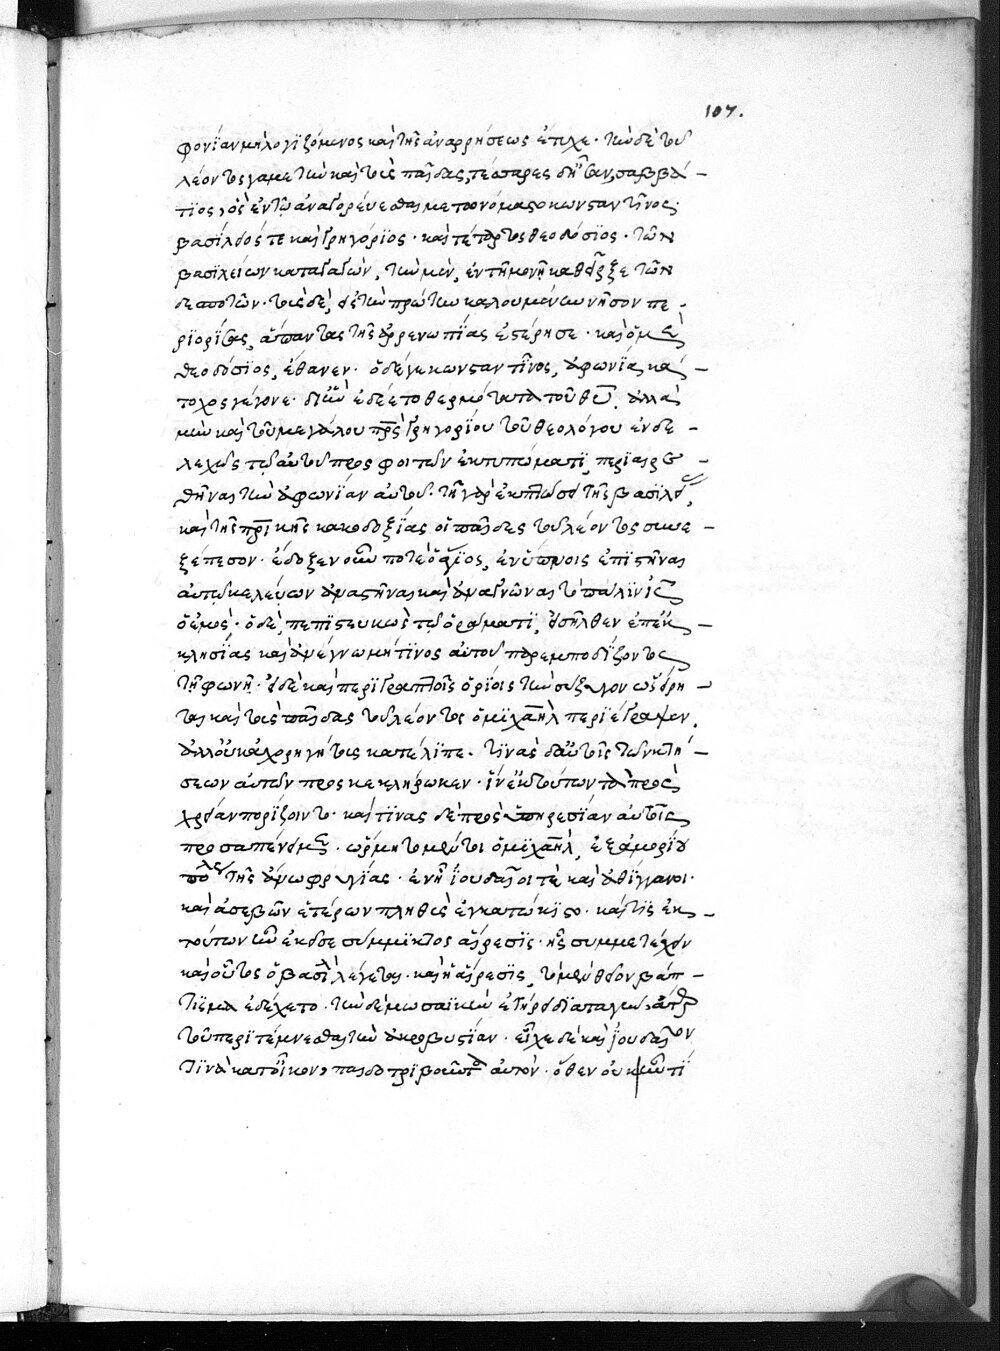 107.
φονίαν μὴ λογιζόμενος καὶ τῆς ἀναρρήσεως ἔτυχε· τῶν δὲ τοῦ
λέοντος γαμετὴν καὶ τοὺς παῖδας, τέσσαρες δ' ἦσαν, σαββά-
τιος, ὃς ἐν τῷ ἀναγορεύεσθαι μετωνόμαστο κωνσταντῖνος·
βασίλειός τε καὶ γρηγόριος· καὶ τέταρτος θεοδόσιος· τῶν
βασιλείων καταγαγών, τὴν μὲν, ἐν τῇ μονῇ καθεῖρξε τῶν
δεσποτῶν· τοὺς δὲ, εἰς τὴν πρώτην καλουμένην νῆσον πε-
ριορίσας, ἅπαντας τῆς ἀρρενωπίας ἐστέρησε· καὶ ὁ μὲν
θεοδόσιος, ἔθανεν· ὁ δέ γε κωνσταντῖνος, ἀφωνίᾳ κά-
τοχος γέγονε· δι' ἣν ἐδέετο θερμότατα τοῦ θεοῦ, ἀλλὰ
μὴν καὶ τοῦ μεγάλου πατρὸς γρηγορίου τοῦ θεολόγου ἐνδε-
λεχῶς τῷ αὐτοῦ προσφοιτῶν ἐκτυπώματι, περιαιρε-
θῆναι τὴν ἀφωνίαν αὐτοῦ· τῇ γὰρ ἐκπτώσει τῆς βασιλείας,
καὶ τῆς πατρικῆς κακοδοξίας οἱ παῖδες τοῦ λέοντος συνε-
ξέπεσον· ἔδοξεν οὖν ποτὲ ὁ ἅγιος, ἐν ὑπνοις ἐπιστῆναι
αὐτῷ κελεύων ἀναστῆναι καὶ ἀναγνῶναι τὸ πάλιν ἰησοῦς
ὁ ἐμός· ὁ δὲ, πεπιστευκὼς τῷ ὁράματι, εἰσῆλθεν ἐπ' ἐκ-
κλησίας καὶ ἀνέγνω μή τινος αὐτοῦ παρεμποδίζοντος
τῇ φωνῇ· εἰ δὲ καὶ περιγραπτοῖς ὁρίοις τὴν σύζυγον ὡς εἴρη-
ται καὶ τοὺς παῖδας τοῦ λέοντος ὁ μιχαὴλ περιέγραψεν,
ἀλλ' οὐκ ἀχορηγήτους κατέλιπε· τινὰς δ' αὐτοῖς τῶν κτή-
σεων αὐτῶν προσκεκλήρωκεν· ἵν' ἐκ τούτων τὰ πρὸς
χρείαν πορίζοιντο· καί τινας δὲ πρὸς ὑπηρεσίαν αὐτοῖς
προσαπένειμε· ὥρμητο μὲν οὗτος ὁ μιχαὴλ, ἐξ ἀμορίου
πόλεως τῆς ἄνω φρυγίας· ἐν ᾗ ἰουδαῖοί τε καὶ ἀθίγγανοι·
καὶ ἀσεβῶν ἑτέρων πληθὺς ἐγκατῴκιστο· καί τις ἐκ
τούτων ἦν ἐκεῖσε σύμμικτος αἵρεσις· ἧς συμμετέχειν
καὶ οὗτος ὁ βασιλεὺς λέγεται· καὶ ἡ αἵρεσις, τὸ μὲν θεῖον βάπ-
τισμα ἐδέχετο· τῶν δὲ μωσαϊκῶν ἐτήρει διαταγῶν, ἄτερ
τοῦ περιτέμνεσθαι τὴν ἀκροβυστίαν· εἶχε δὲ καὶ ἰουδαῖον
τινὰ κατ' οἶκον, παιδοτριβοῦντα αὐτόν· ὅθεν οὐκ ἦν τι